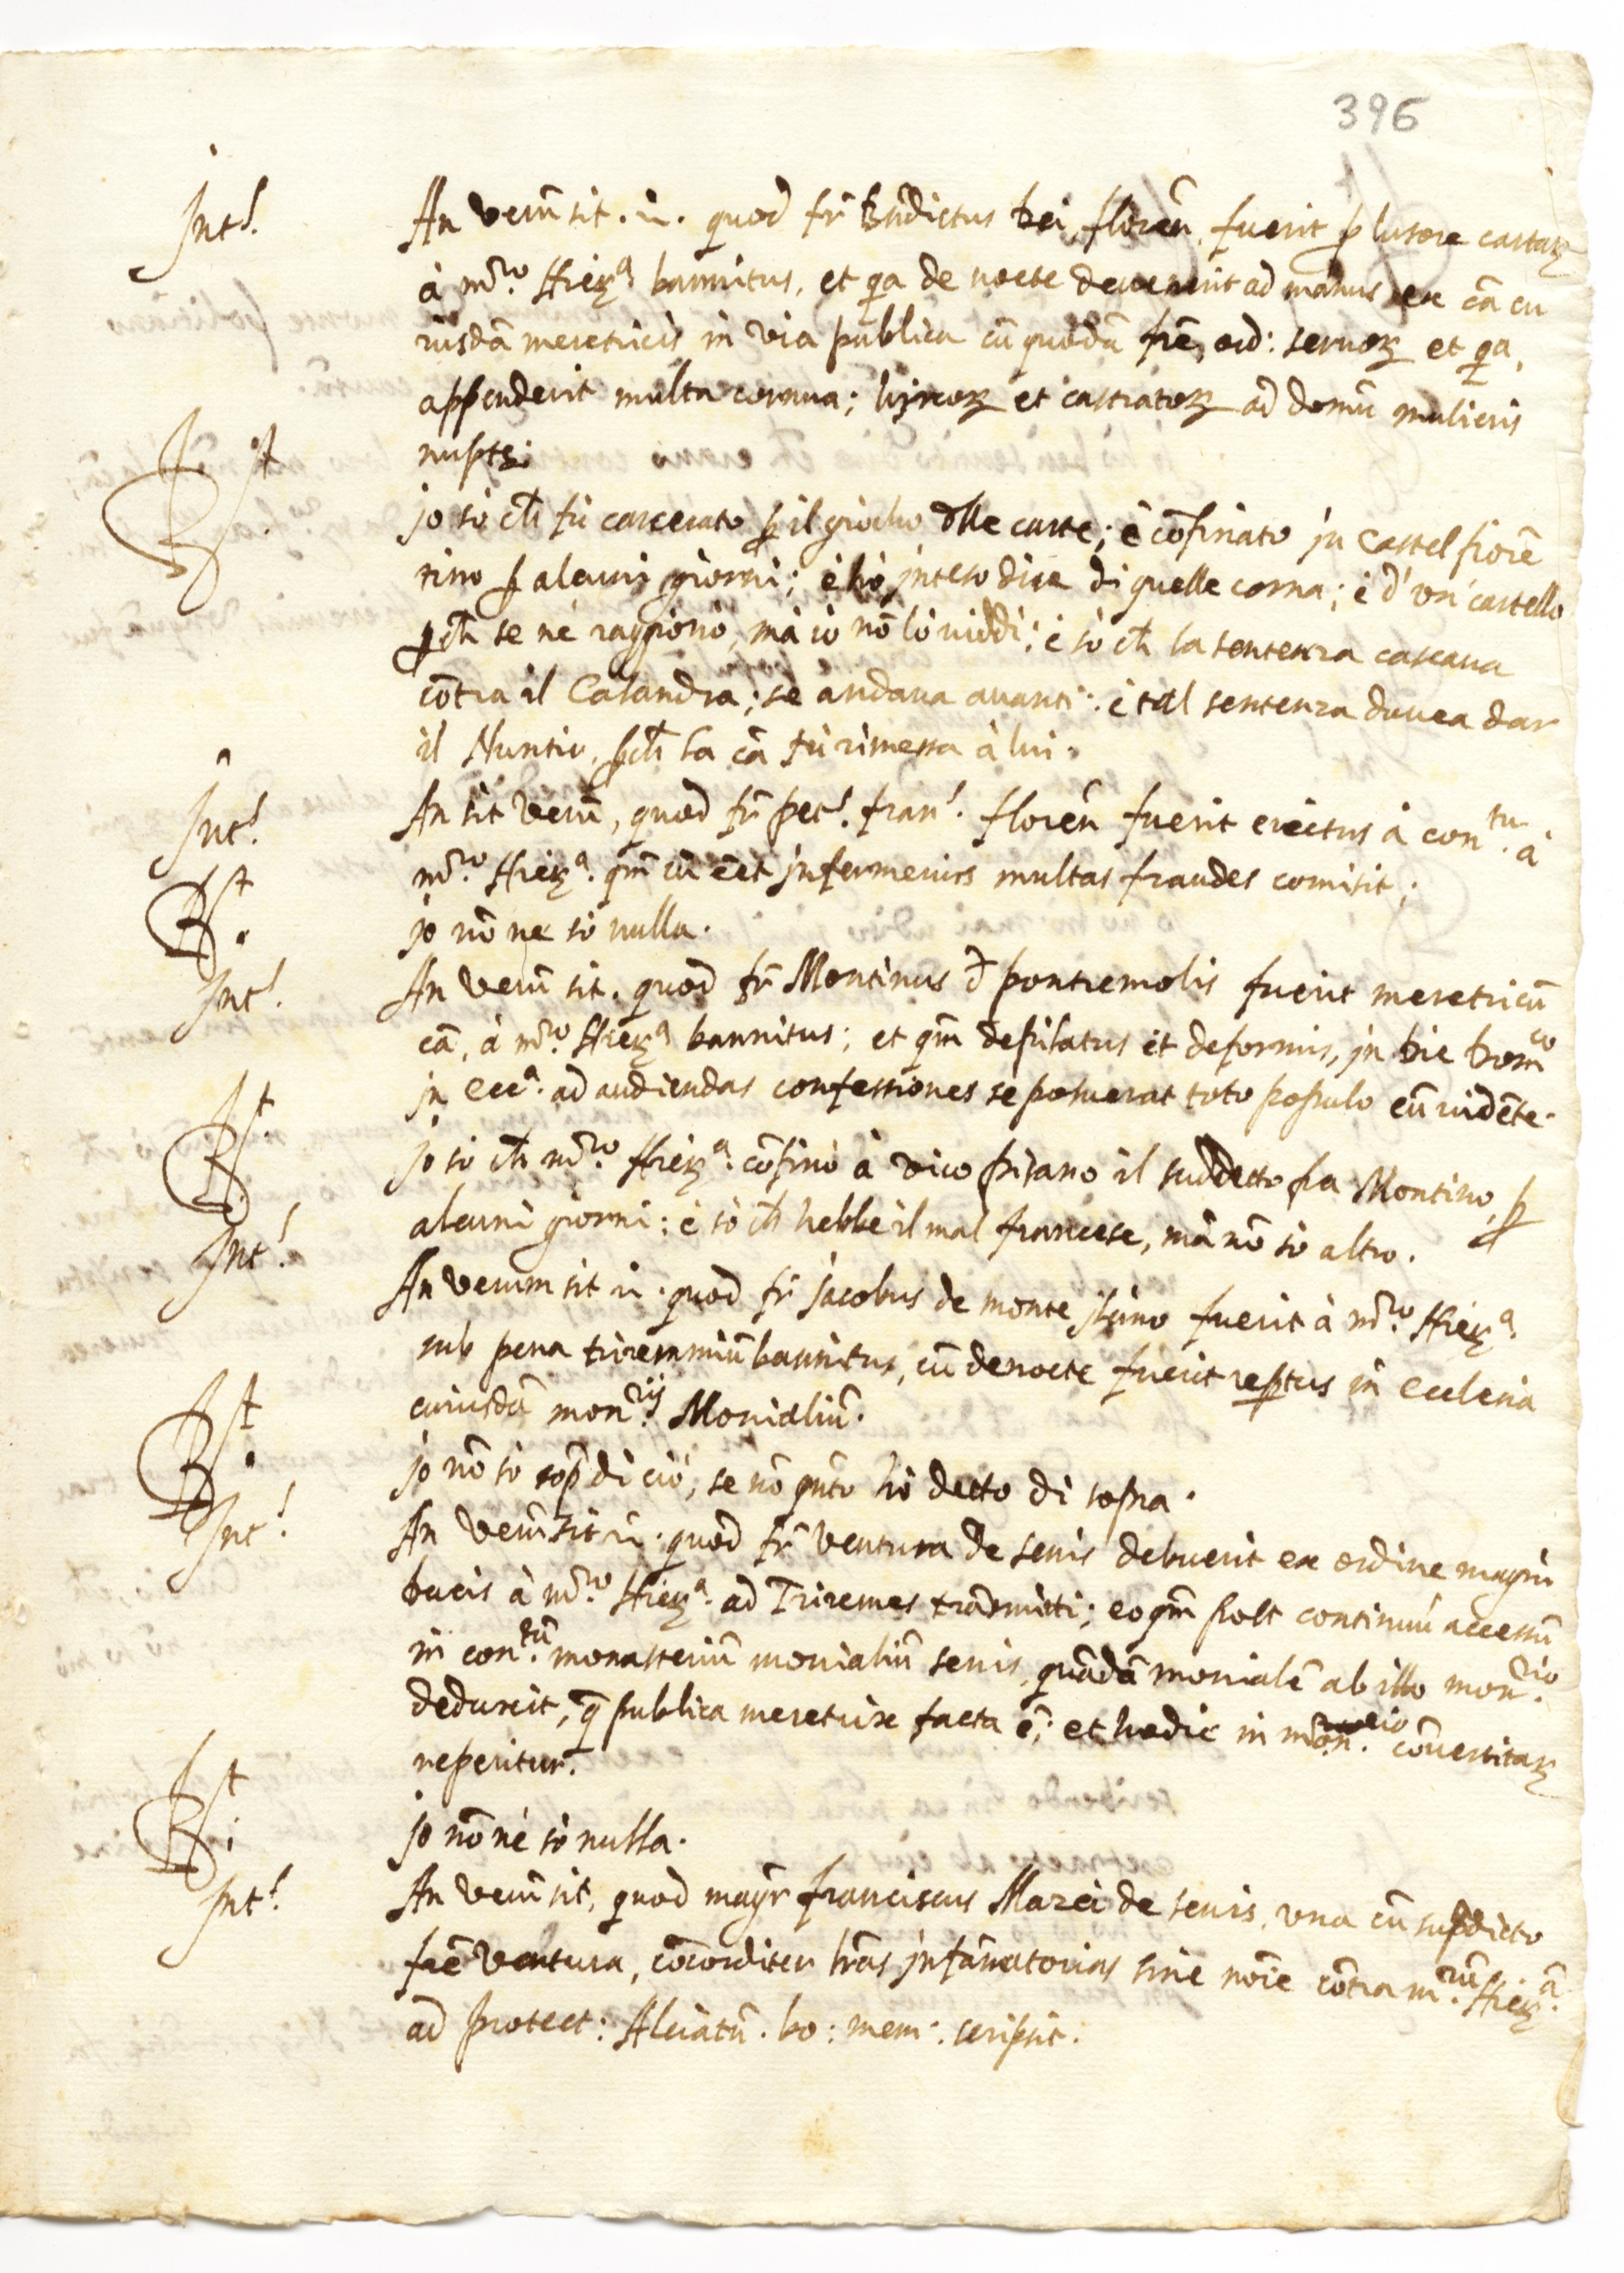 396
Int.s An verũ sit .n. quod fr̃ Bñdictus bei florẽn. fuerit ꝑ lusore cartaꝝ
à m.ro Hierꝝ.a bannitus, et qa de nocte devenerit ad manus ex cã cu
iusdã meretricis in via publica cũ quodã fr̃e, ord: servoꝝ et qa,
appenderit multa cornua; hircoꝝ et castratoꝝ ad domũ mulieris
nuptę:
R.t jo sò ch̃ fù carcerato ꝑ il giocho dlle carte; è cõfinato in Castel fiorẽ
tino ꝑ alcuni giorni; è hò inteso dire di quelle corna; è d'un' cartello
ꝑch̃ se nè raggionò, mà io nõ lò viddi; è sò ch̃ la sentenza cascava
cõtra il Casandra; se andava avanti: è tal sentenza dovea dar
il Nuntio, ꝑch̃ la cã fù rimessa à lui.
Int.s An sit verũ, quod fr̃ pet.s fran.s florẽn fuerit eiectus à con.tu à
m.ro Hierꝝ.a qm̃ cũ eẽt infermerius multas fraudes comisit;
R.t jo nõ ne sò nulla.
Int.s An verũ sit. quod fr̃ Montinus d̃ pontremolis fuerit meretricũ
cã, à m.ro Hierꝝ.a bannitus; et qm̃ depilatus et deformis, in die Dom.co
in ecc.a ad audiendas confessiones se posuerat toto populo eũ vidẽte.
R.t jo sò ch̃ m.ro Hierꝝ.a cõfinò à vico pisano il suddetto fra Montino, ꝑ
alcuni giorni: è sò ch̃ hebbe il mal francese, mà nõ sò altro.
Int.s An verum sit n. quod fr̃ Jacobus de monte ilcino fuerit à m.ro Hierꝝ.a
sub pena triremmiũ bannitus, cũ de nocte fuerit reꝑtus in ecclesia
cuiusdã mon.rij Monialiũ.
R.t jo nõ sò sop̃ di ciò, se nõ qñto hò detto di sopra.
Int.s An verũ sit n. quod fr̃ Ventura de senis debuerit ex ordine magni
Ducis à m.ro Hierꝝ.a ad Triremes trãsmitti; eo qm̃ post continuũ accessũ
in con.tũ monasteriũ monialiũ senis, quãdã monialẽ ab illo mon.rio
deduxit, q̃ publica meretrix facta ẽ; et hodie in mon.rio cõvertitaꝝ
reperitur.
R.t jo nõ nè sò nulla.
Int.s An verũ sit, quod mag̃r franciscus Mazei de senis, una cũ sup̃dicto
fr̃e Ventura, cõcorditer lr̃as infãmatorias sine noĩe cõtra m.rũ Hierꝝ.ã
ad protect: Alciatũ. bo: mem: scripsit.